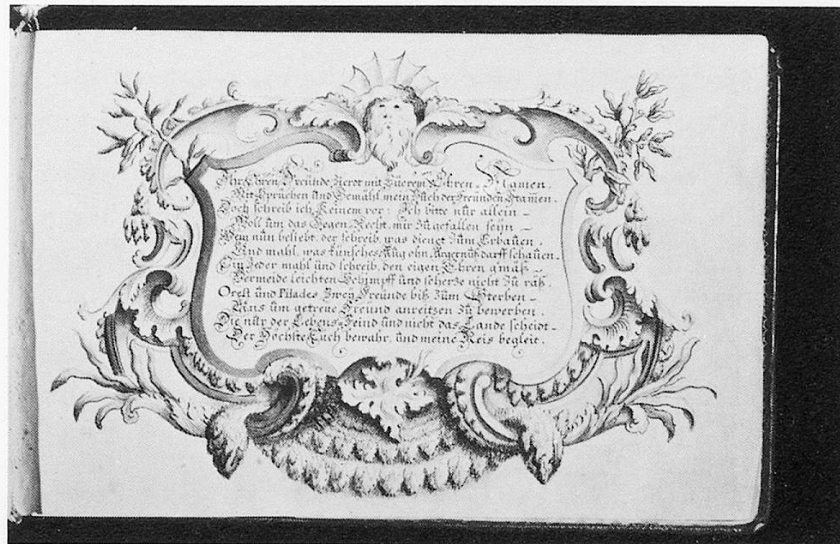 Ihr Ehren Freünde, Zierdt mit Eüerem Ehren Namen,
Mit Sprüchen und Gemähl mein Buch der Freunden Stamen.
Doch schreib ich Keinem vor: Ich bitte nur allein
Woll um das Gegen Recht, mir zu gefallen seijn
Wem nun beliebt, der schreib, was dienet zum Erbauen,
Und mahl, was künsches Aug ohn Ärgernüß darff schauen.
Ein Jeder mahl und schreib, den eigen Ehren gmäß
Vermeide leichten Schimpff und scherze nicht zu räß.
Orest und Pilades Zweij Freunde biß zum Sterben
Uns um getreue Freund anreitzen zu bewerben,
Die nur der Lebens-Feind und nicht das Lande scheidt
Der Höchste Euch bewahr, und meine Reis begleit.